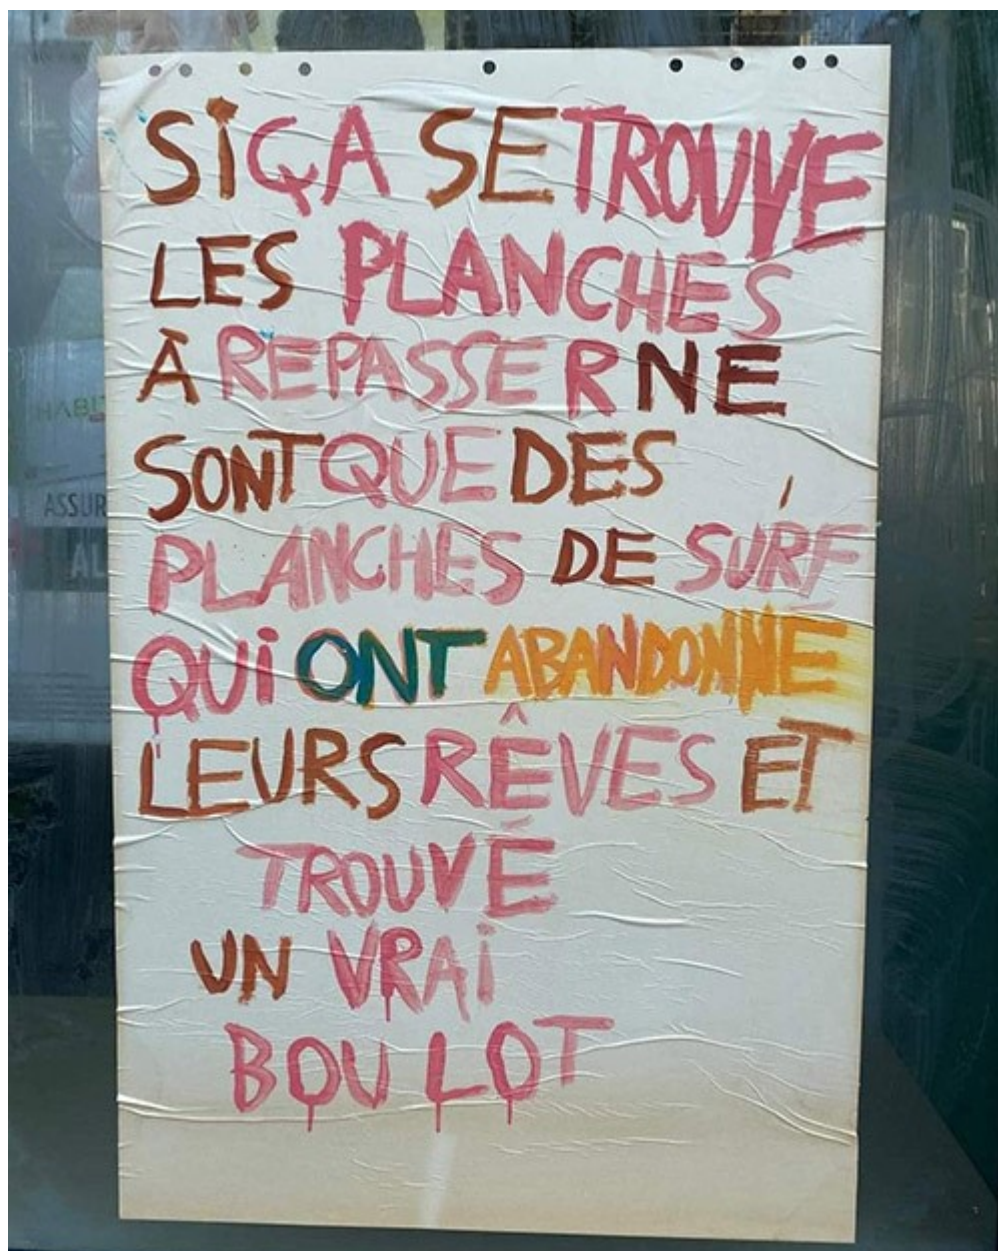 SI ÇA SE TROUVE
LES PLANCHES
À REPASSER NE
SONT QUE DES
PLANCHES DE SURF
QUI ONT ABANDONNÉ
LEURS RÊVES ET
TROUVÉ
UN VRAI
BOULOT